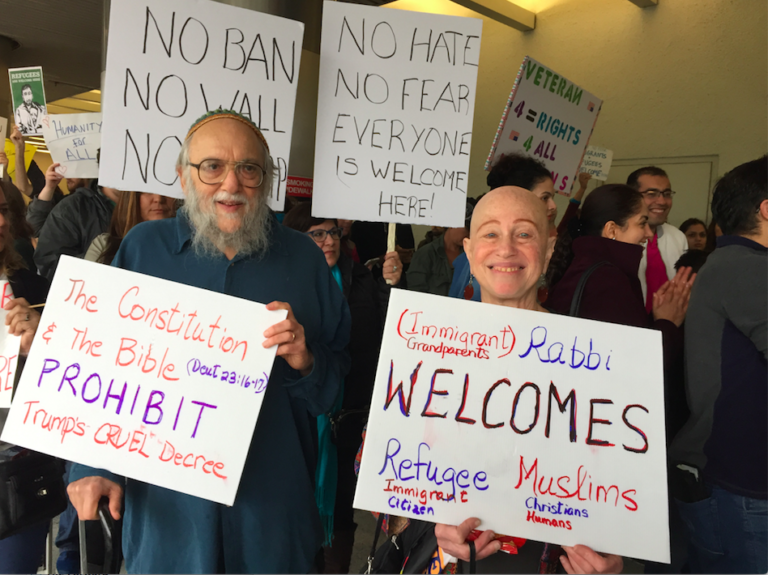 NO BAN
NO WALL
NO
NO HATE
NO FEAR
EVERYONE
IS WELCOME
HERE!
VETERAN
4 = RIGHTS
4 ALL
REFUGEES
HUMANITY
FOR
ALL
The Constitution
& The Bible (Deut 23:16-17)
PROHIBIT
Trump's CRUEL Decree
(Immigrant) Rabbi
Grandparents
WELCOMES
Refugee
Immigrant
Citizen
Muslims
Christians
Humans